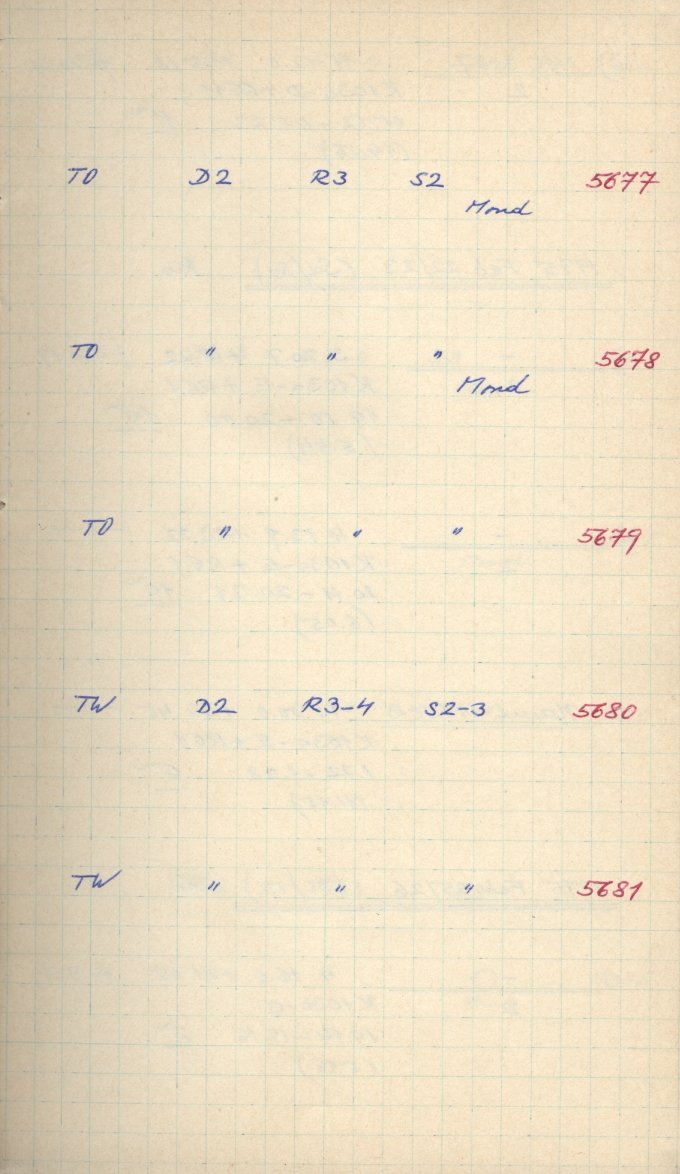 TO D2 R3 S2 5677
Mond
TO " " " 5678
Mond
TO " " " 5679
TW D2 R3-4 S2-3 5680
TW " " " 5681